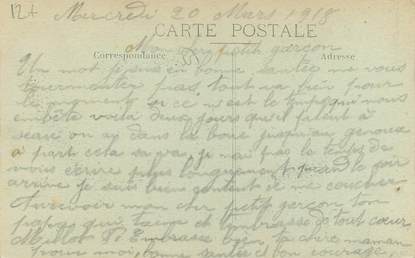 12+
Mercredi 20 Mars 1918
CARTE POSTALE
Mon cher petit garçon
Correspondance
Adresse
Un mot je suis en bonne santée ne vous
tourmentez pas tout va bien pour
le moment si ce n'est le temps qui nous
embête voila deux jours qu'il
on ai dans la boue jusqu'au genoux
a part cela sa va, je n'ai pas le temps de
vous écrire plus longuement quand le soir
arrive je suis bien content de me coucher
Aurevoir mon cher petit garçon ton
papa qui t'aime et t'embrasse de tout cœur
Embrasse bien ta chère maman
pour moi, bonne santée et bon courage